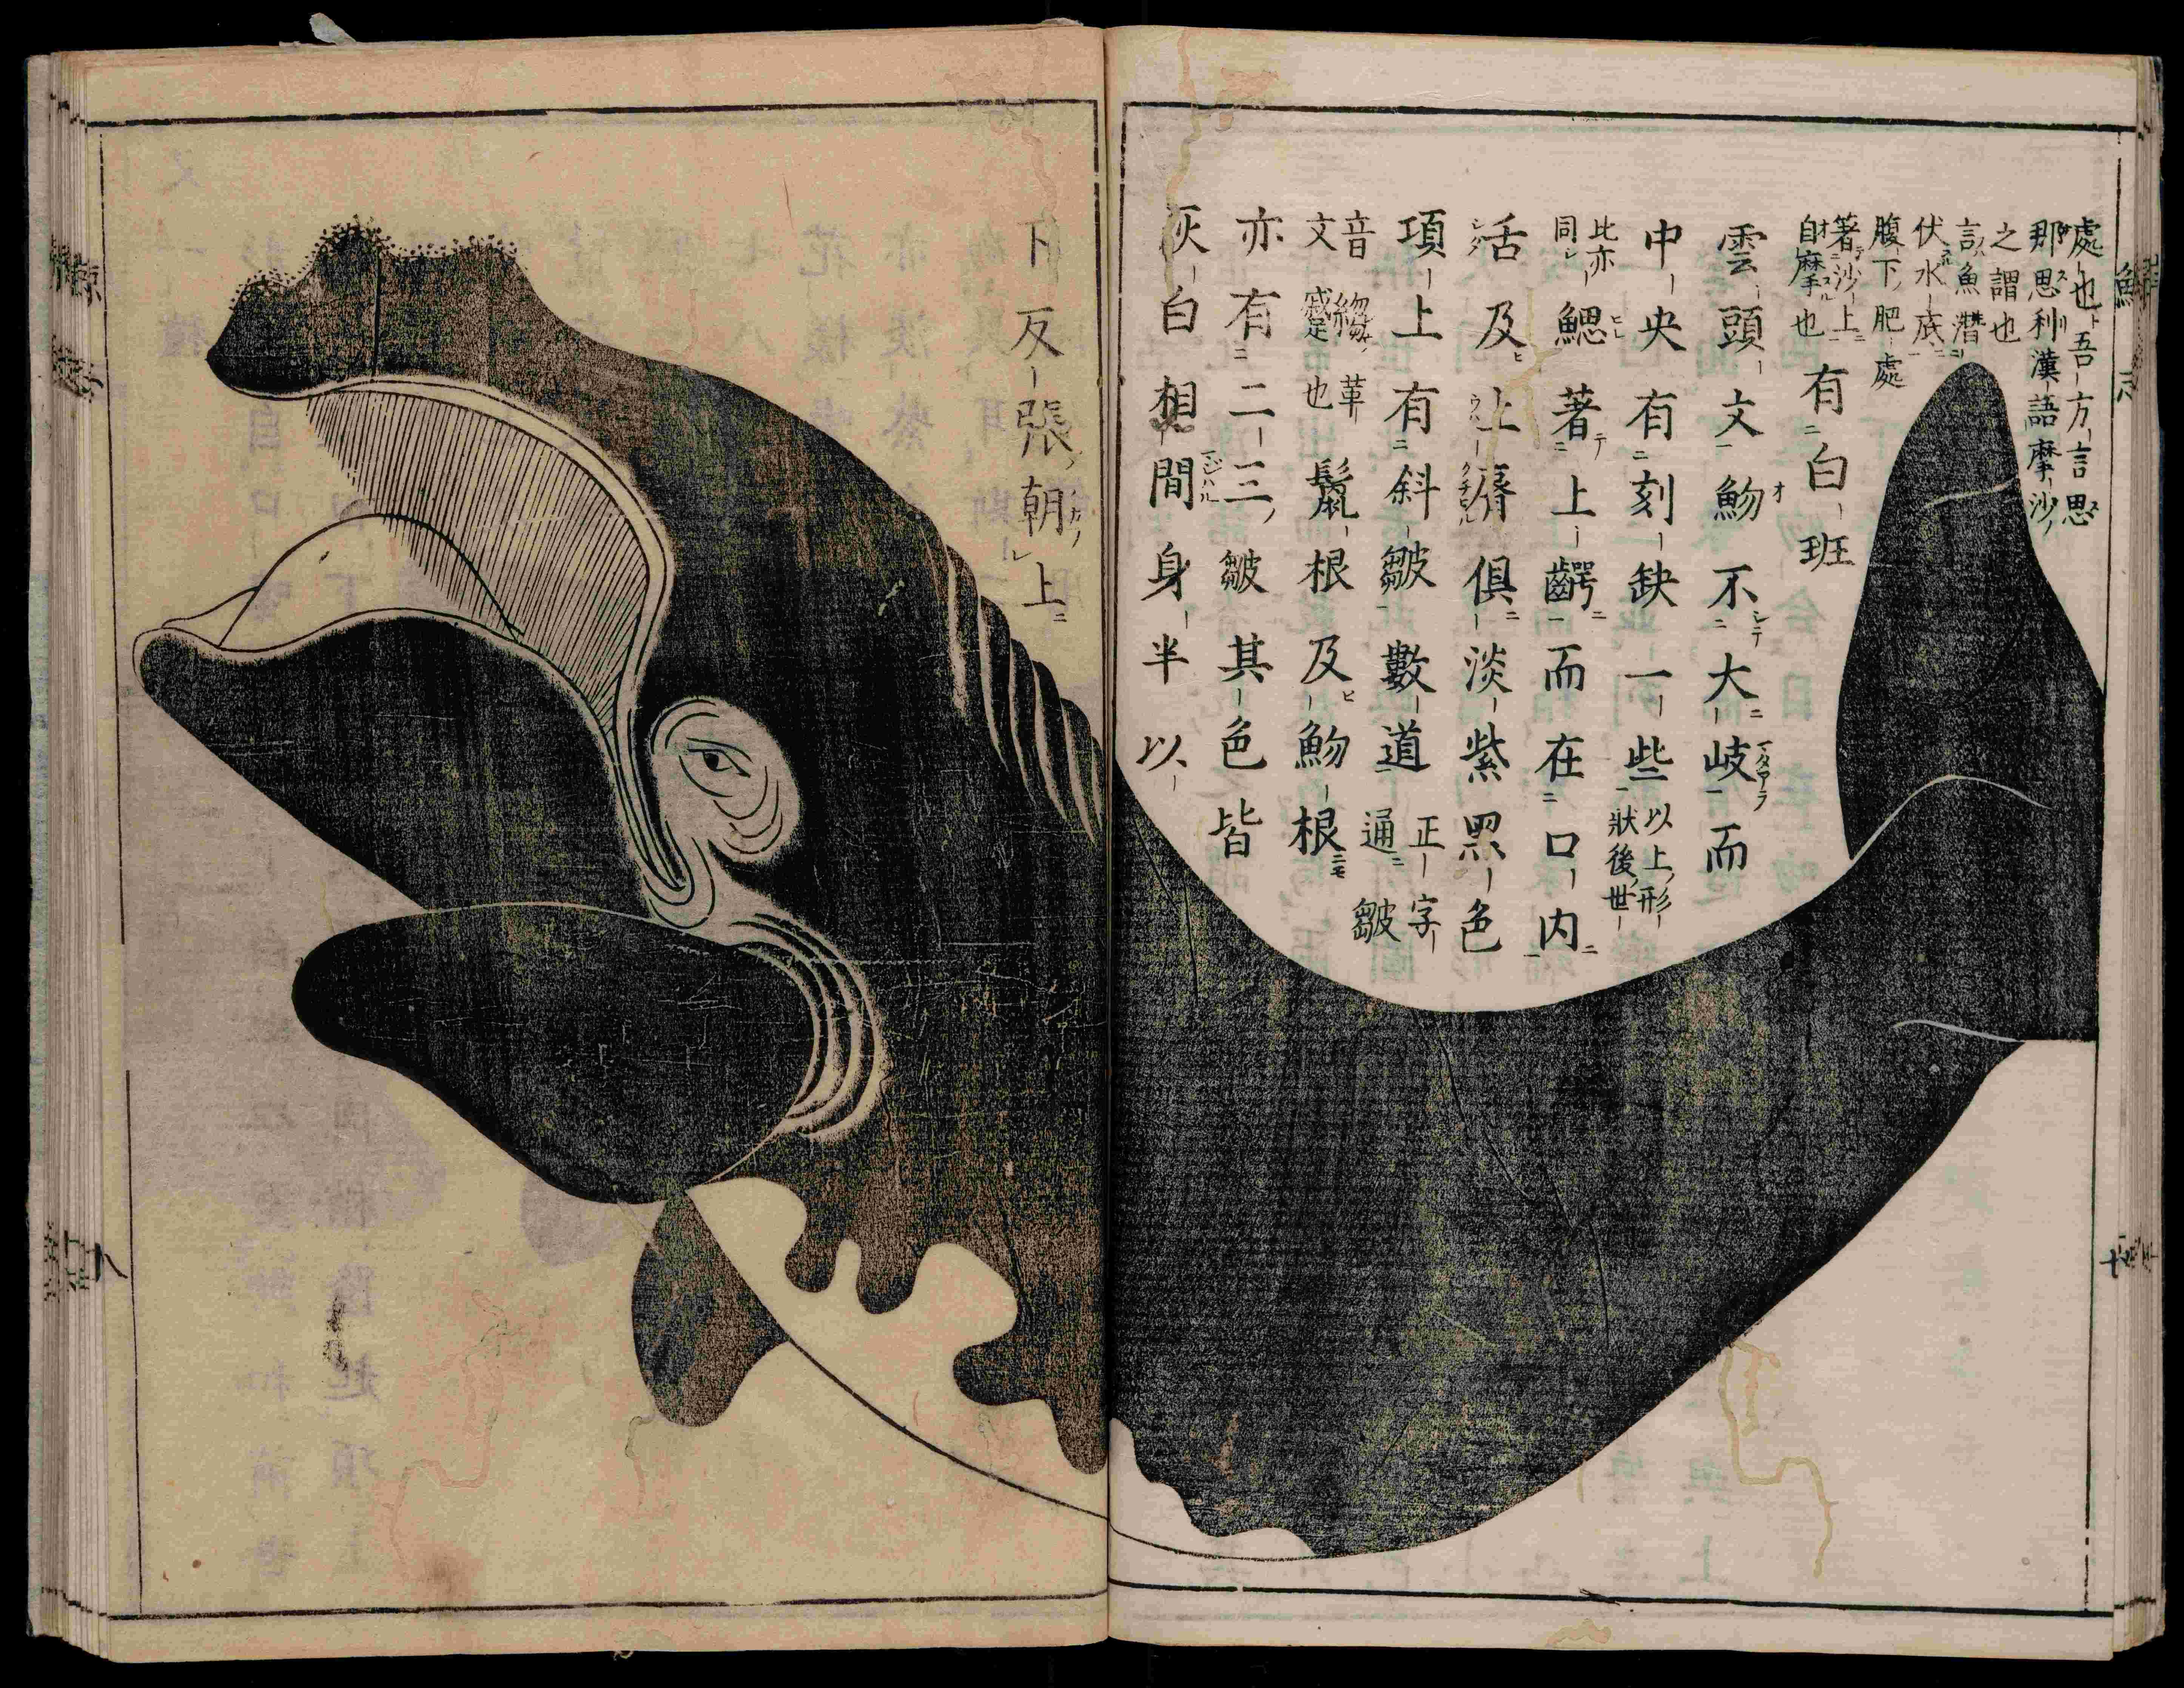 處也吾方言思
那思利漢語摩沙
之謂也
言魚潛
伏水底
腹下肥處
著沙上
自摩也
有白班
雲頭文魩不大岐而
中央有刻缺一些
以上形
狀後世
比亦
同
鰓著上齶而在口内
活及上脣俱淡紫黑色
項上有斜皺數道
正字
通皺
音
文
革
也
鬣根及魩根
亦有二三皺其色皆
灰白相間身半以
下反張朝上